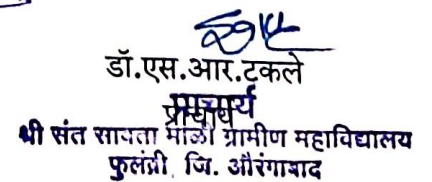 डॉ.एस.आर.टकले
प्राचार्य
श्री संत सावता माळी ग्रामीण महाविद्यालय
फुलंब्री, जि. औरंगाबाद